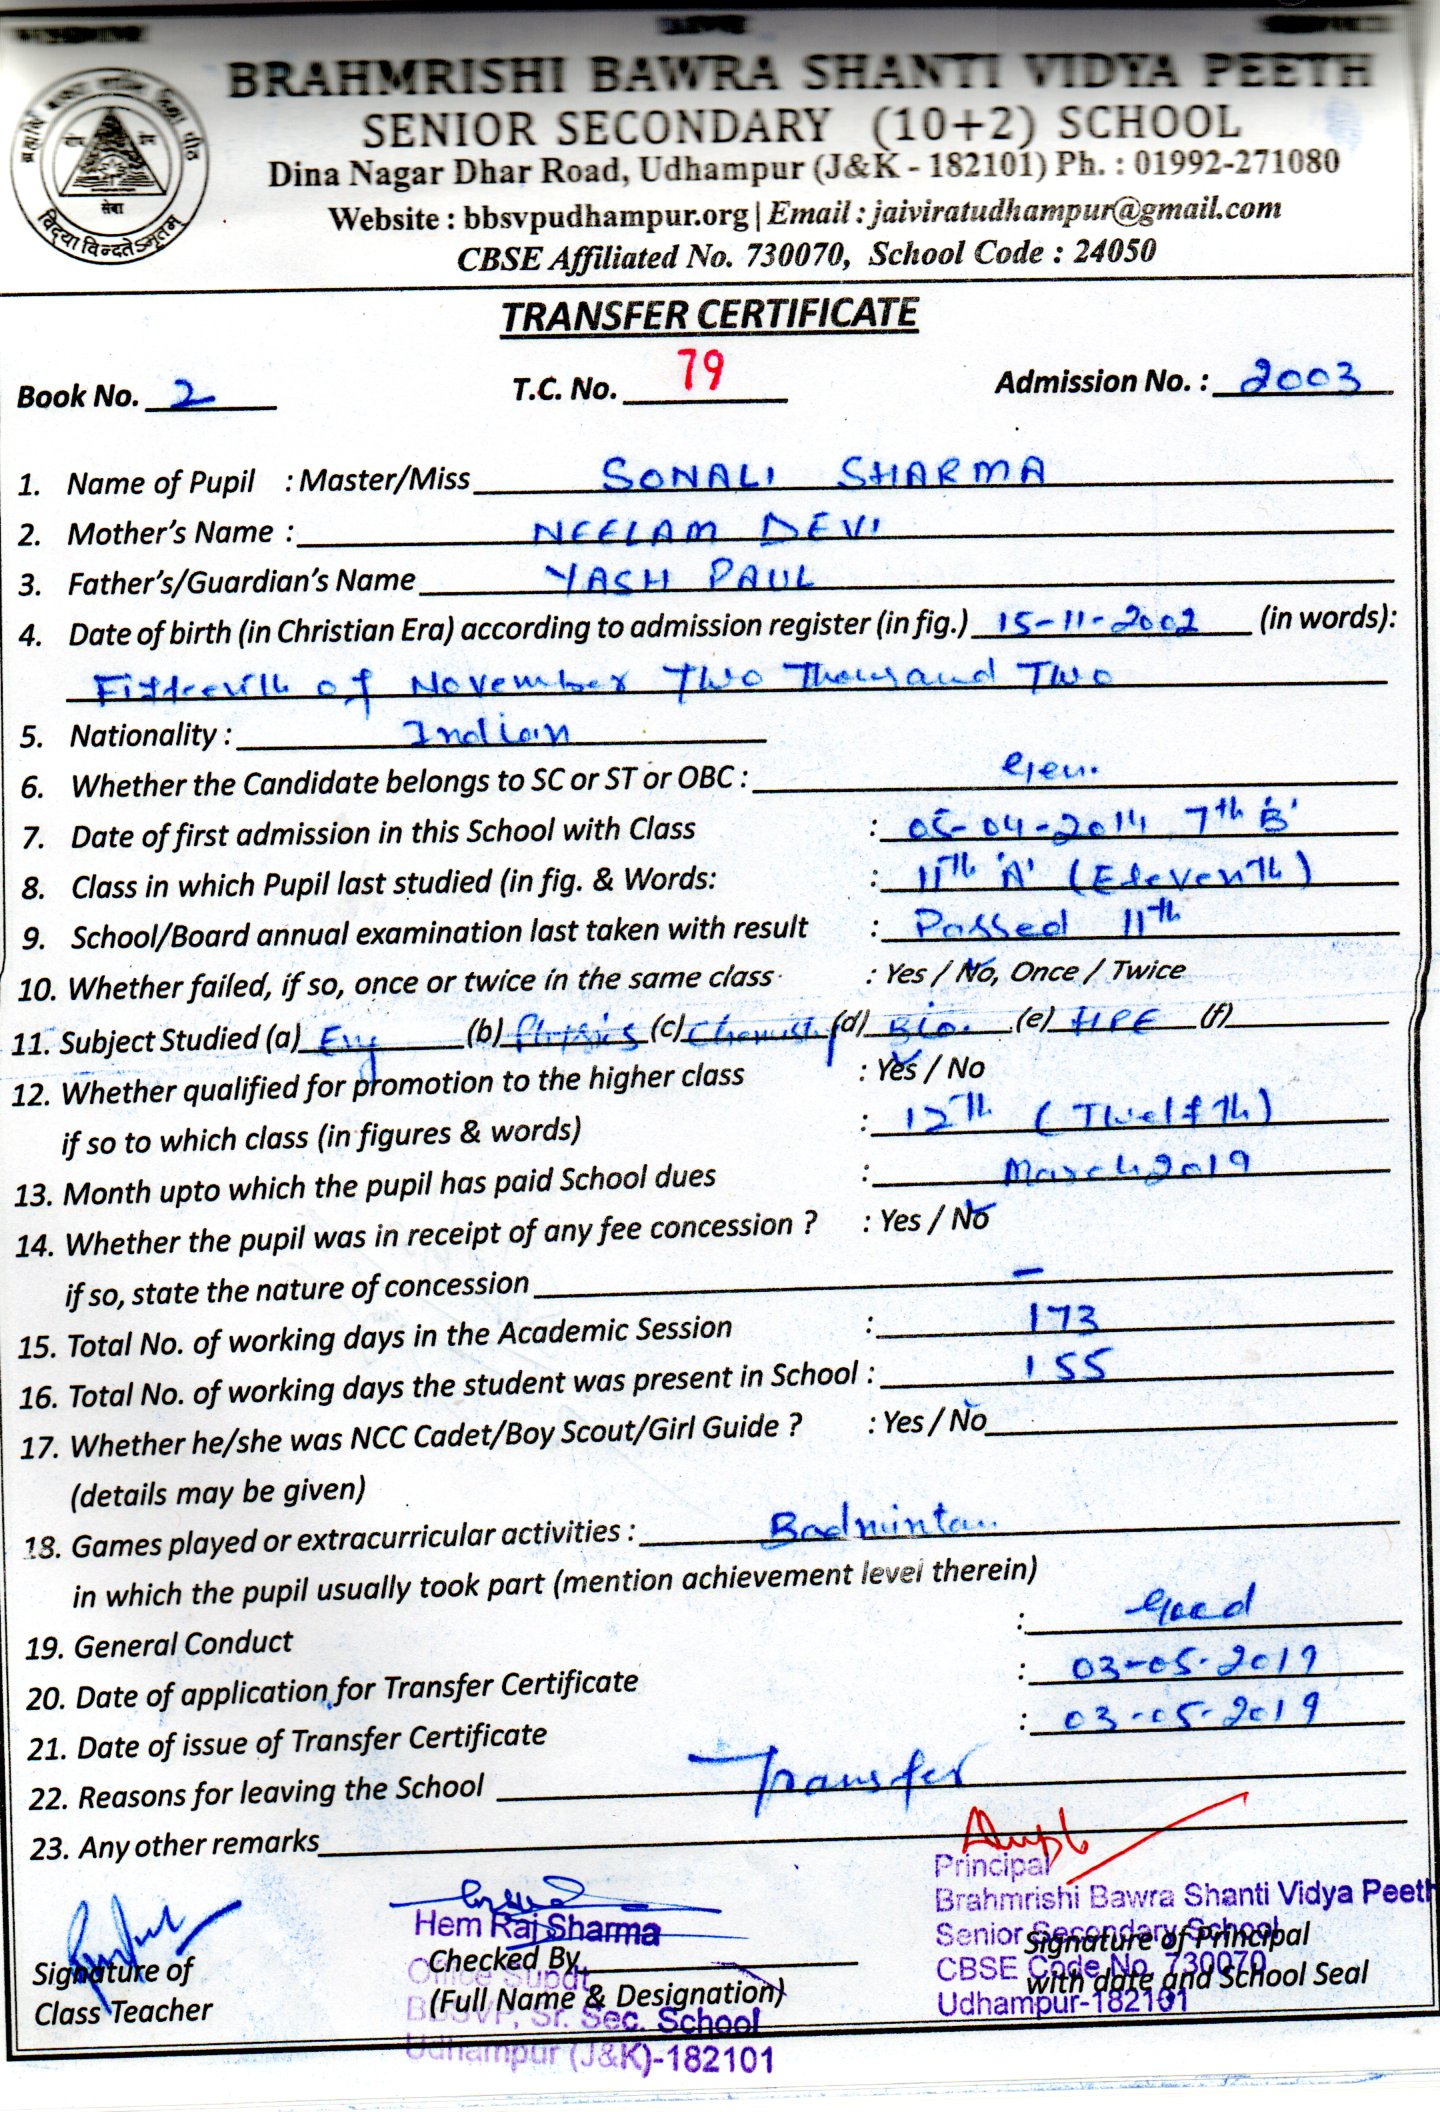 BRAHMRISHI BAWRA SHANTI VIDYA PEETH
SENIOR SECONDARY (10+2) SCHOOL
Dina Nagar Dhar Road, Udhampur (J&K - 182101) Ph. : 01992-271080
Website : bbsvpudhampur.org | Email : jaiviratudhampur@gmail.com
CBSE Affiliated No. 730070, School Code : 24050
सेवा
विद्या विन्दतेऽमृतम्
TRANSFER CERTIFICATE
Book No. 2 T.C. No. 79 Admission No. : 2003
1. Name of Pupil : Master/Miss SONALI SHARMA
2. Mother's Name : NEELAM DEVI
3. Father's/Guardian's Name YASH PAUL
4. Date of birth (in Christian Era) according to admission register (in fig.) 15-11-2002 (in words):
of November Two Thousand Two
5. Nationality : Indian
6. Whether the Candidate belongs to SC or ST or OBC : Gen.
7. Date of first admission in this School with Class : 05-04-2014 7th 'B'
8. Class in which Pupil last studied (in fig. & Words: : 11th 'A' (Eleventh)
9. School/Board annual examination last taken with result : Passed 11th
10. Whether failed, if so, once or twice in the same class : Yes / No, Once / Twice
11. Subject Studied (a) Eng (b) Physics (c) Chemistry (d) Bio. (e) HPE (f)
12. Whether qualified for promotion to the higher class : Yes / No
if so to which class (in figures & words) : 12th (Twelfth)
13. Month upto which the pupil has paid School dues : March 2019
14. Whether the pupil was in receipt of any fee concession ? : Yes / No
if so, state the nature of concession –
15. Total No. of working days in the Academic Session : 173
16. Total No. of working days the student was present in School : 155
17. Whether he/she was NCC Cadet/Boy Scout/Girl Guide ? : Yes / No
(details may be given)
18. Games played or extracurricular activities : Badminton
in which the pupil usually took part (mention achievement level therein)
19. General Conduct : Good
20. Date of application for Transfer Certificate : 03-05-2019
21. Date of issue of Transfer Certificate : 03-05-2019
22. Reasons for leaving the School Transfer
23. Any other remarks
Principal
Brahmrishi Bawra Shanti Vidya Peeth
Senior Secondary School
CBSE Code No. 730070
Udhampur-182101
Signature of Principal
with date and School Seal
Hem Raj Sharma
Office Supdt
BBSVP, Sr. Sec. School
Udhampur (J&K)-182101
Checked By
(Full Name & Designation)
Signature of
Class Teacher